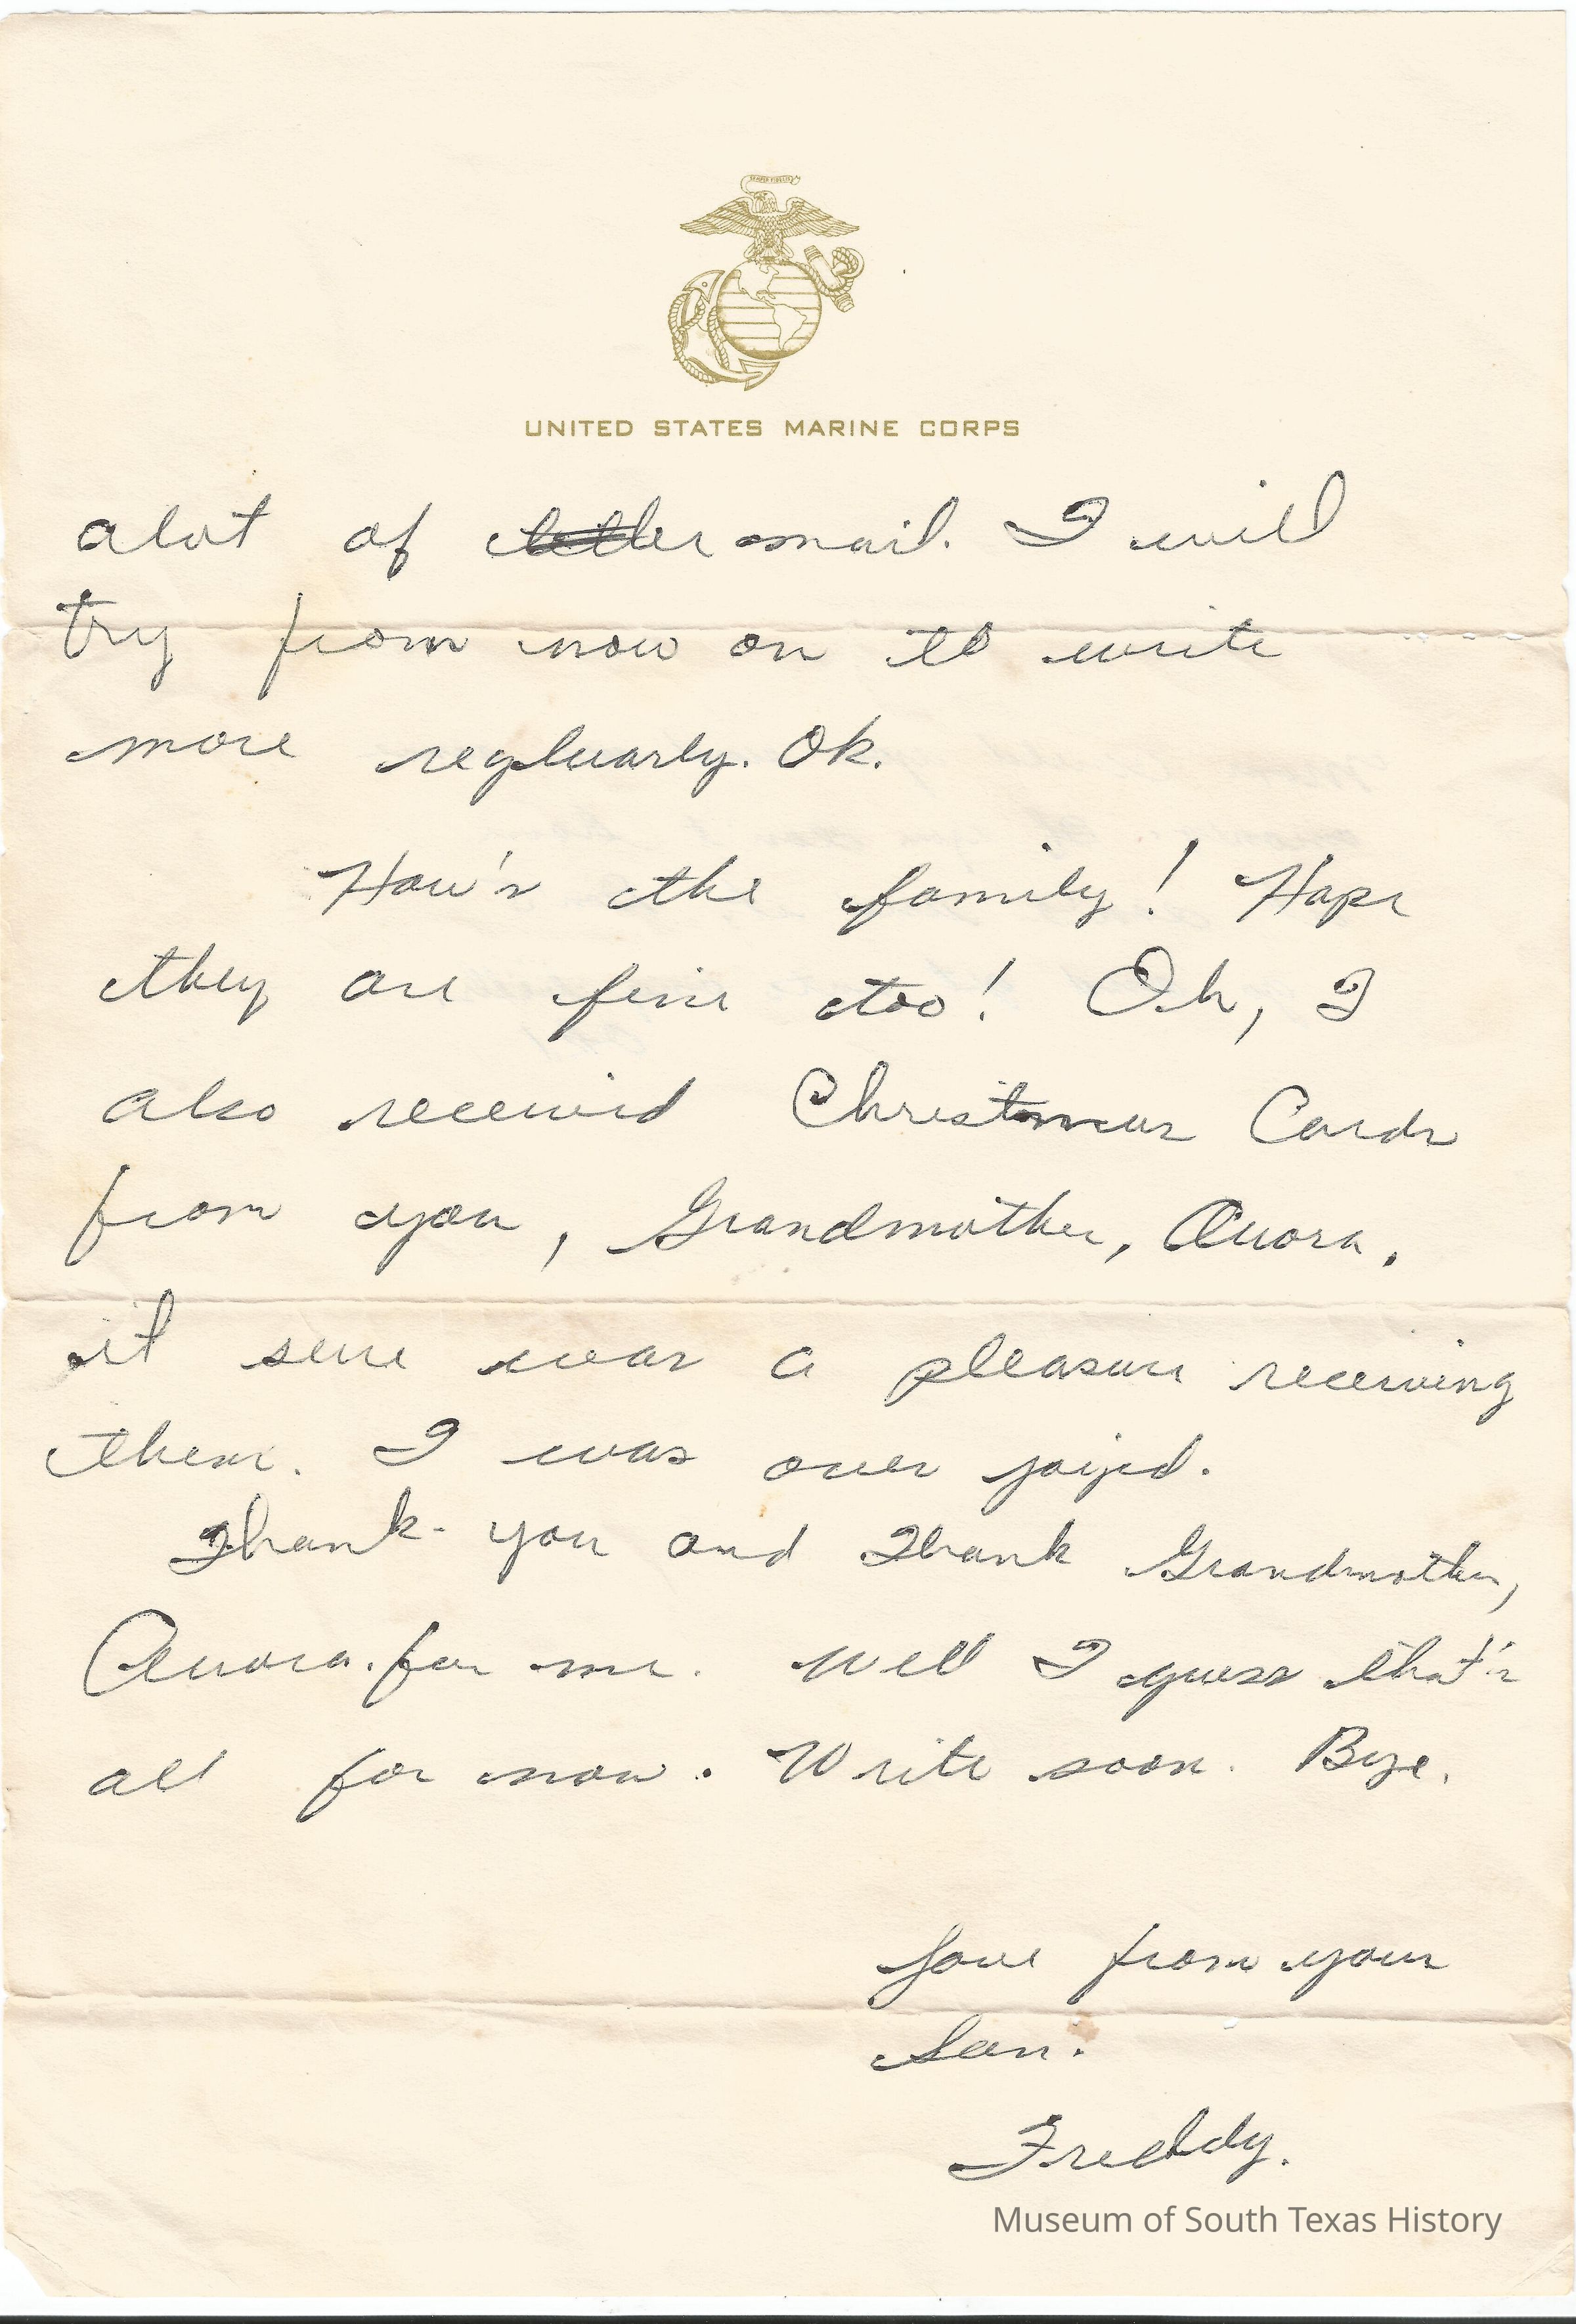 SEMPER FIDELIS
UNITED STATES MARINE CORPS
alot of letter mail. I will
try from now on to write
more regluarly. Ok.
How's the family! Hope
they are fine too! Oh, I
also received Christmas Cards
from you, Grandmother, Auora.
it sure was a pleasure receiving
them. I was over joyed.
Thank-you and Thank Grandmother,
Auora. for me. Well I guess that's
all for now. Write soon. Bye.
Love from your
Son.
Freddy.
Museum of South Texas History